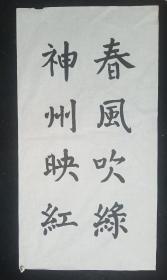 春風吹綠
神州映紅